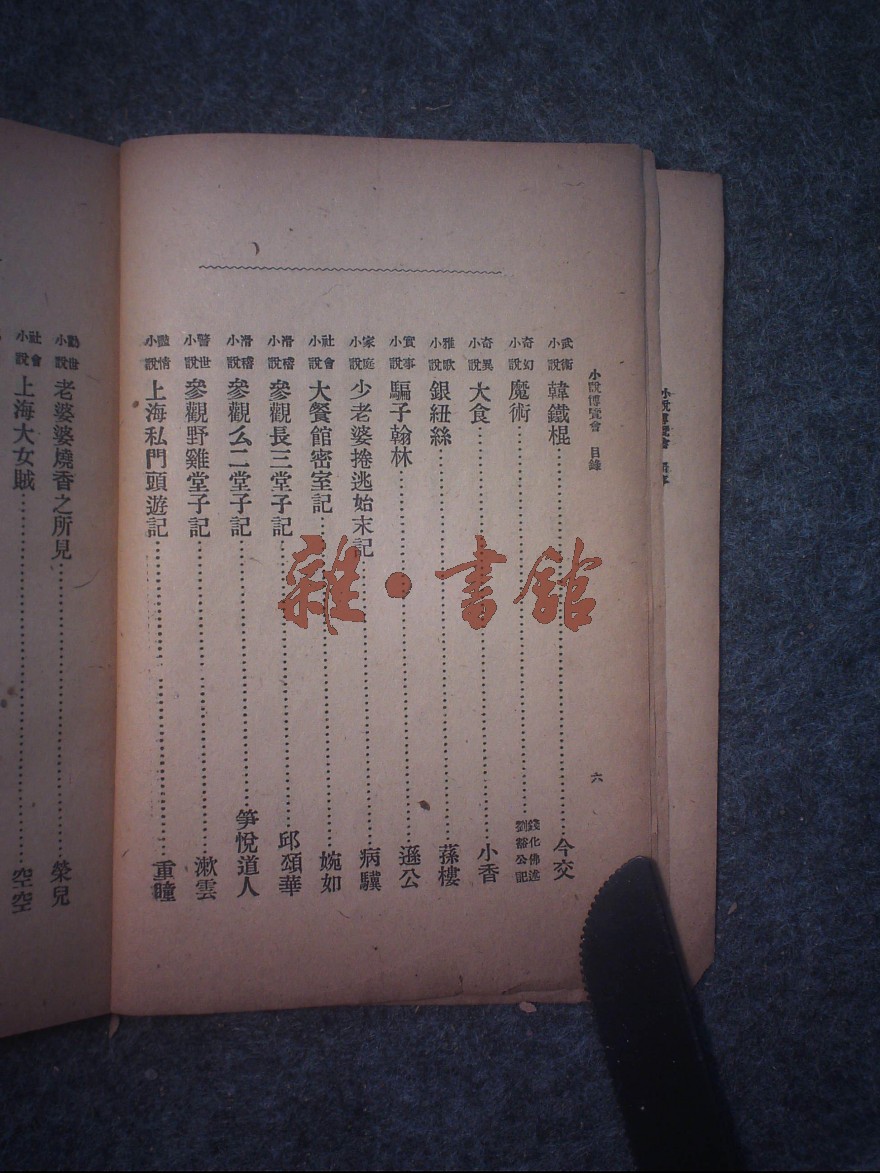 小說博覽會　目錄　六
武術小說　韓鐵棍……今交
奇幻小說　魔術……錢化佛述　劉豁公記
奇異小說　大食……小香
雅歌小說　銀紐絲……蓀樓
實事小說　騙子翰林……遜公
家庭小說　少老婆捲逃始末記……病驥
社會小說　大餐館密室記……婉如
滑稽小說　參觀長三堂子記……邱頌華
滑稽小說　參觀么二堂子記……笋悅道人
警世小說　參觀野雞堂子記……漱雲
豔情小說　上海私門頭遊記……重瞳
勸世小說　老婆婆燒香之所見……榮兒
社會小說　上海大女賊……空空
雜·書館